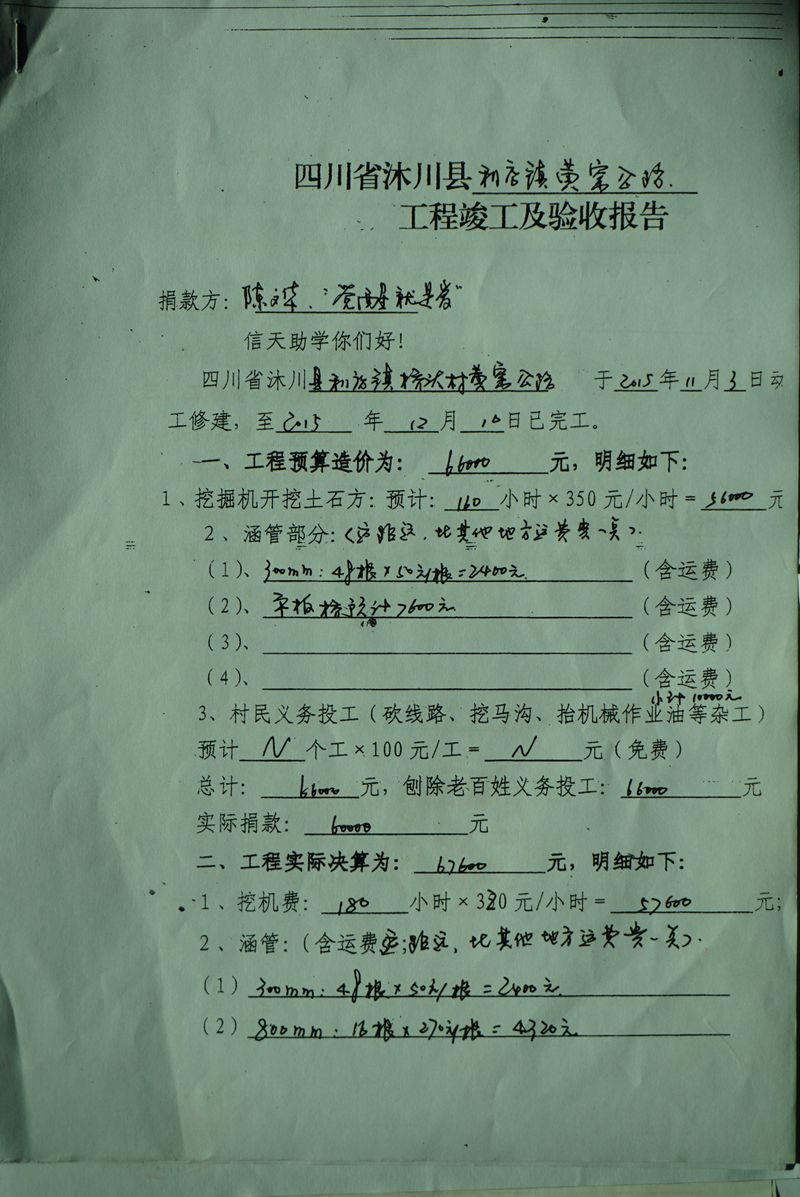 四川省沐川县利店镇黄窑公路.
工程竣工及验收报告
捐款方: 陈文华. "苍南县就是者"
信天助学你们好!
四川省沐川县利店镇桥沃村黄窑公路 于2015年11月3日动
工修建, 至2015年12月16日已完工。
一、工程预算造价为: 66000 元, 明细如下:
1、挖掘机开挖土石方: 预计: 160 小时×350元/小时= 56000 元
2、涵管部分: (运距远. 比其他地方运费贵一美).
(1)、300mm: 48根×50元/根=2400元. (含运费)
(2)、平板桥预计7600元 (含运费)
(3)、 (含运费)
(4)、 (含运费)
小计10000元
3、村民义务投工(砍线路、挖马沟、抬机械作业油等杂工)
预计 N 个工×100元/工= N 元(免费)
总计: 66000 元, 刨除老百姓义务投工: 66000 元
实际捐款: 60000 元
二、工程实际决算为: 67600 元, 明细如下:
1、挖机费: 180 小时×320元/小时= 57600 元;
2、涵管: (含运费;距远, 比其他地方运费贵一美).
(1) 300mm: 48根×50元/根=2400元.
(2) 800mm: 16根×270元/根=4320元